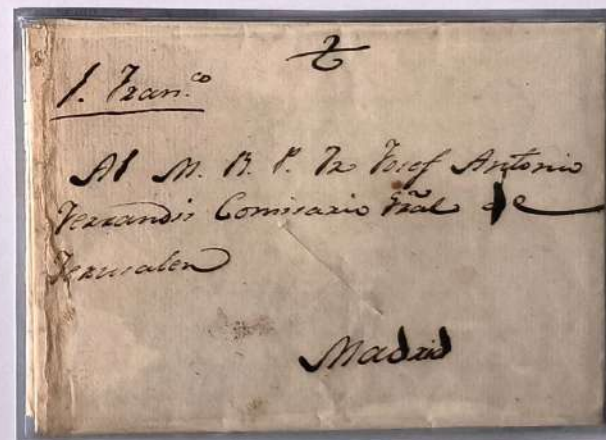 S. Fran.co
Al M. R. P. Fr Josef Antonio
Ferrandis Comisario Gral de
Jerusalen
Madrid